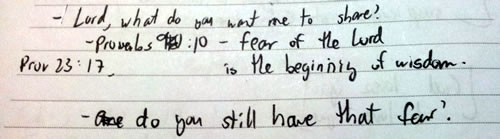 - Lord, what do you want me to share?
- Proverbs :10 - fear of the Lord
Prov 23:17, is the beginning of wisdom.
- do you still have that fear?